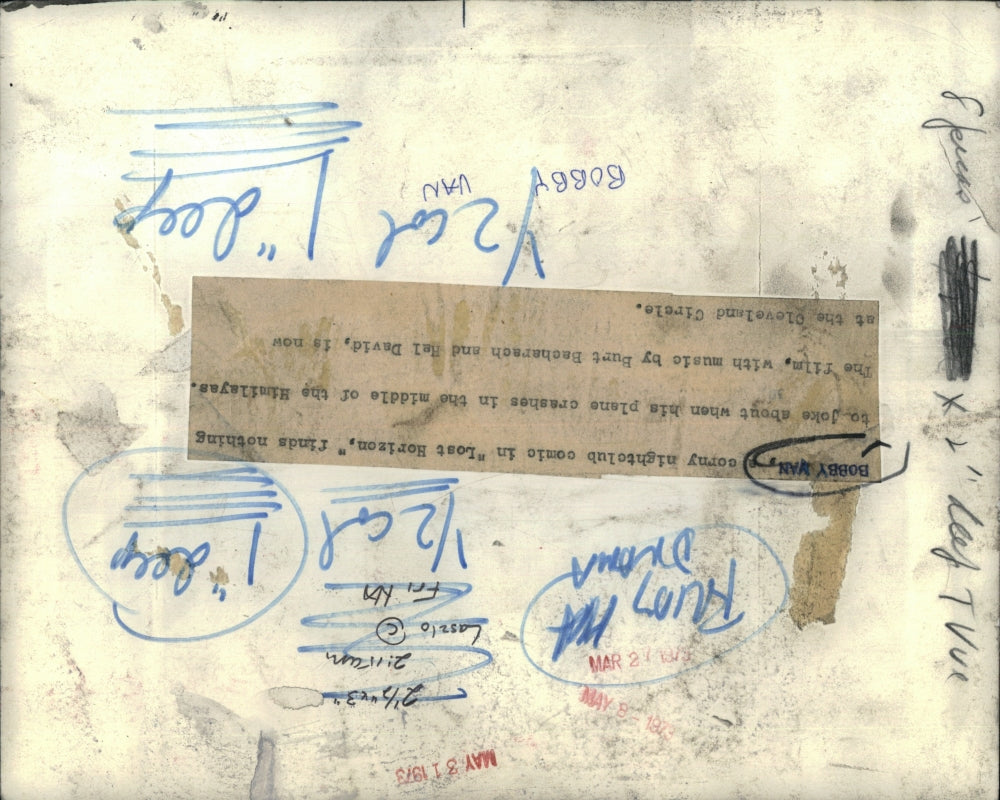 MAY 31 1973
MAY 8 - 1973
MAR 27 1973
2 1/2" x 3"
2:11 am
Laszlo ©
Fri
DRAMA
1/2 col
1" deep
BOBBY VAN, a corny nightclub comic in "Lost Horizon," finds nothing
to joke about when his plane crashes in the middle of the Himilayas.
The film, with music by Burt Bacharach and Hal David, is now
at the Cleveland Circle.
1/2 col
1" deep
BOBBY
VAN
x 2" deep